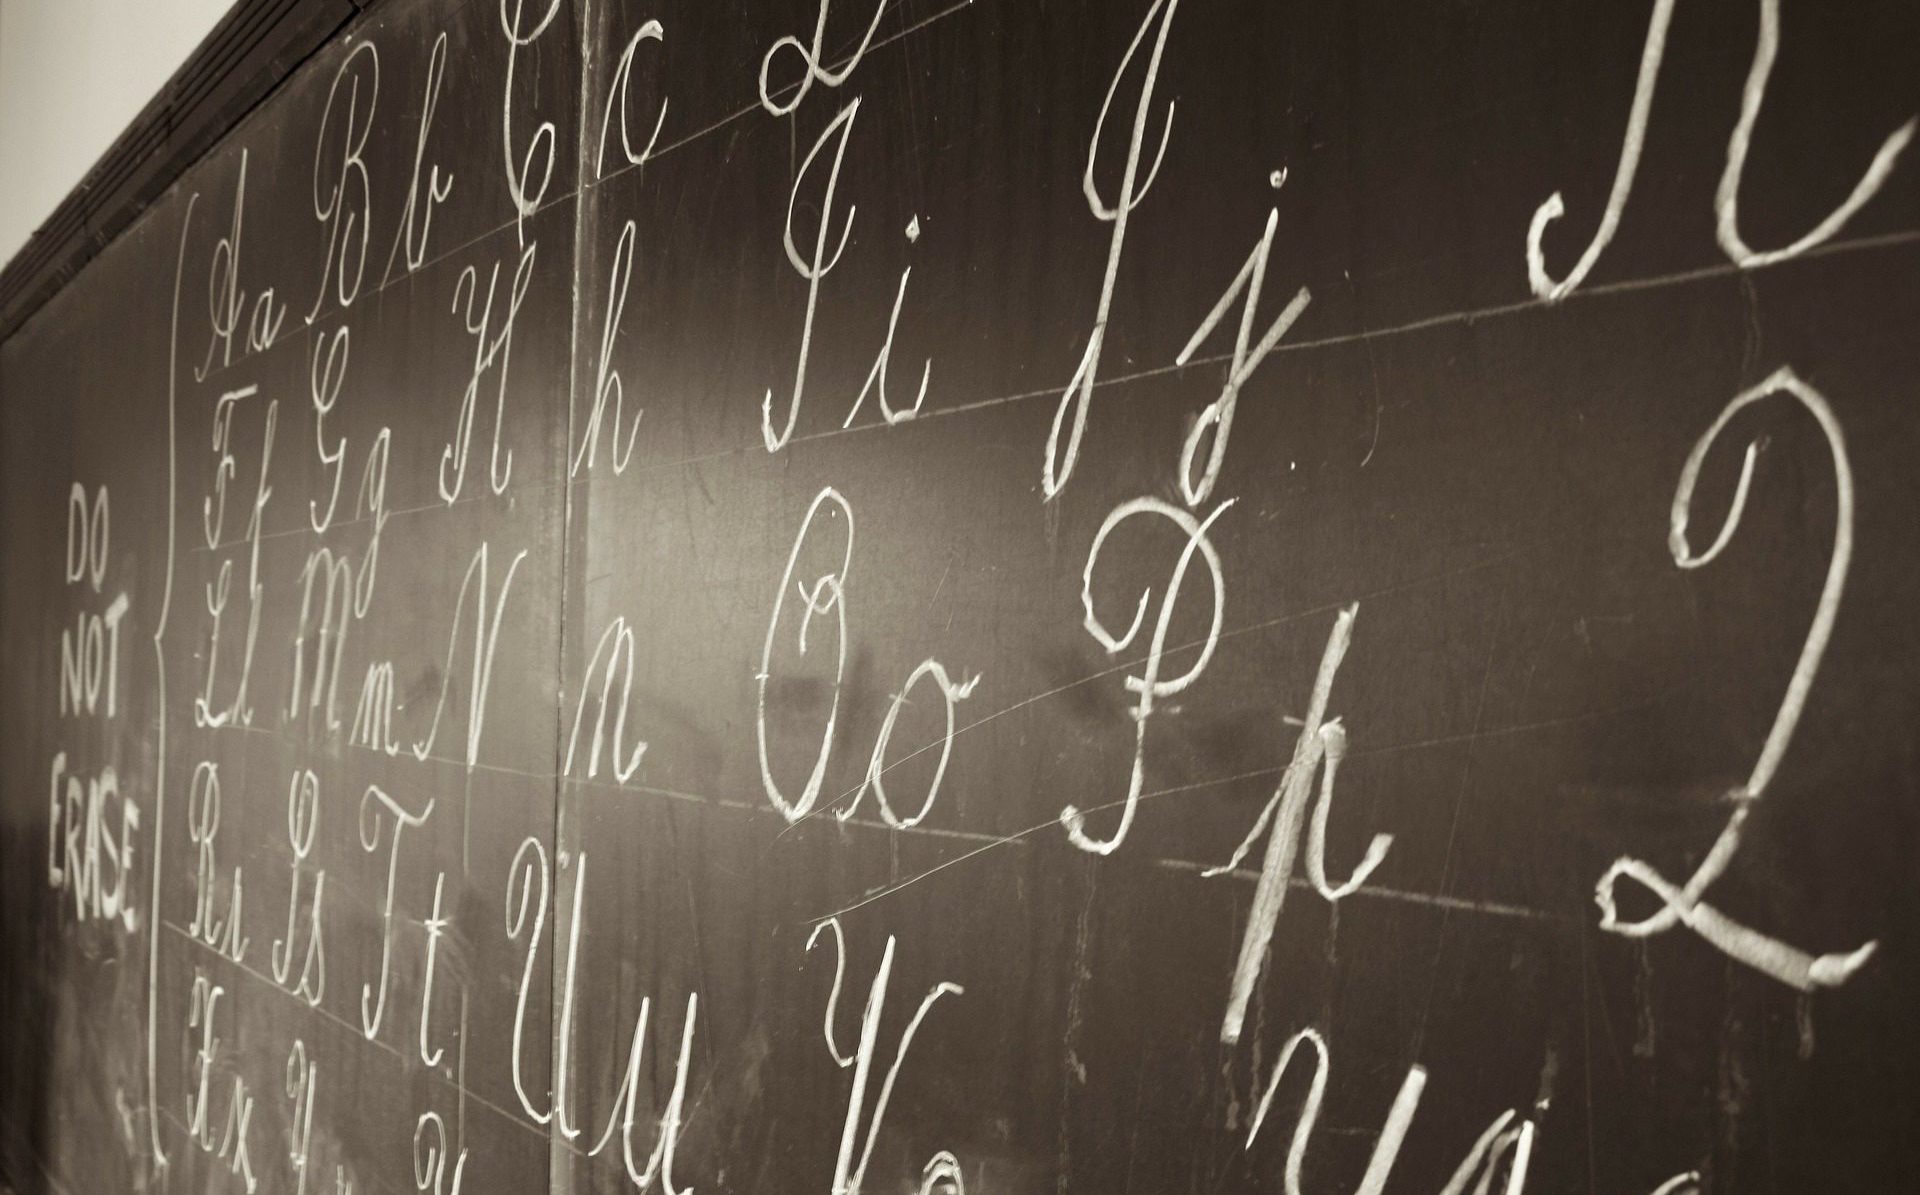 DO
NOT
ERASE
A a B b C c D
F f G g H h I i J j K
L l M m N n O o P p Q
R r S s T t U u V v W w
X x Y y Z